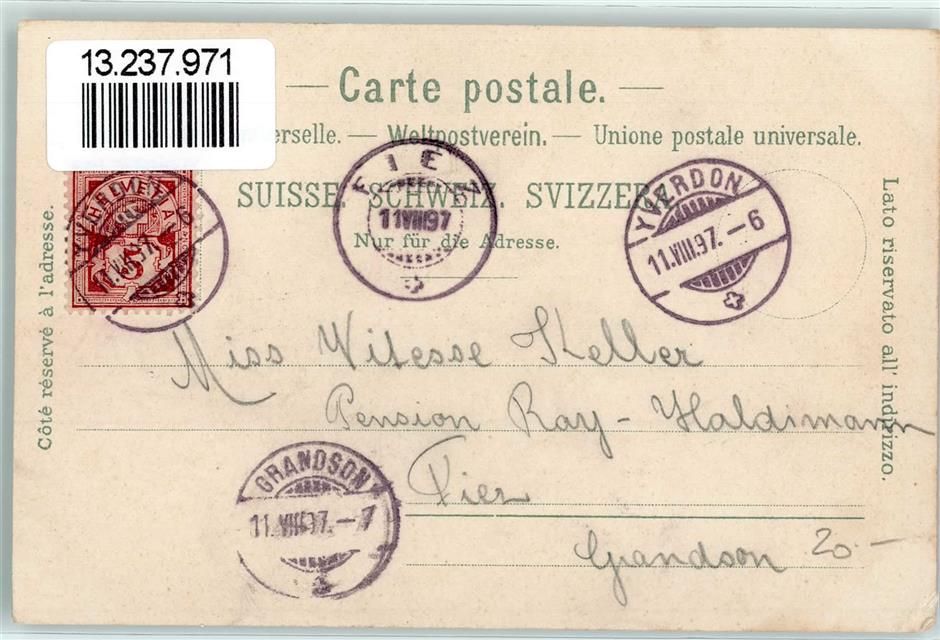 13.237.971
— Carte postale. —
erselle. — Weltpostverein. — Unione postale universale.
SUISSE. SCHWEIZ. SVIZZERA.
Nur für die Adresse.
Côté réservé à l'adresse.
Lato riservato all' indirizzo.
HELVETIA
11.VIII.97. – 6
FIEZ
11 VIII 97
YVERDON
11.VIII.97. – 6
Miss Vitesse Keller
Pension Ray-Haldimann
Fiez
Grandson
20 –
GRANDSON
11.VIII.97. – 7